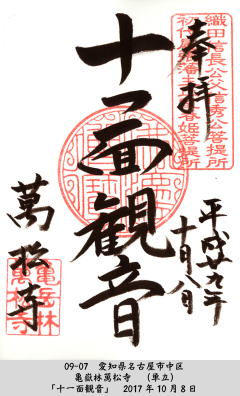 奉拝
織田信長公父信秀公菩提所
十一面観音
平成廿九年
十月八日
萬松寺
亀岳林
萬松寺
09-07 愛知県名古屋市中区
亀嶽林萬松寺 (単立)
「十一面観音」 2017年10月8日